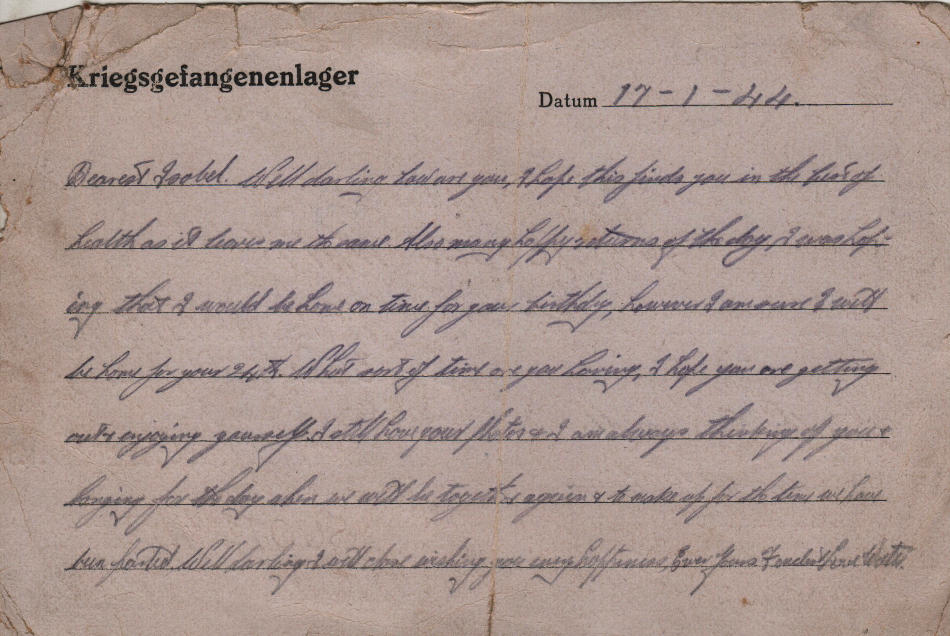 Kriegsgefangenenlager
Datum 17-1-44.
Dearest Isobel. Well darling how are you, I hope this finds you in the best of
health as it leaves me the same. Also many happy returns of the day, I was hop-
ing that I would be home on time for your birthday, however I am sure I will
be home for your 24th. What sort of time are you having, I hope you are getting
out & enjoying yourself, I still have your photos & I am always thinking of you &
longing for the day when we will be together again & to make up for the time we have
been parted. Well darling I will close wishing you every happiness, Ever Yours Fondest Love